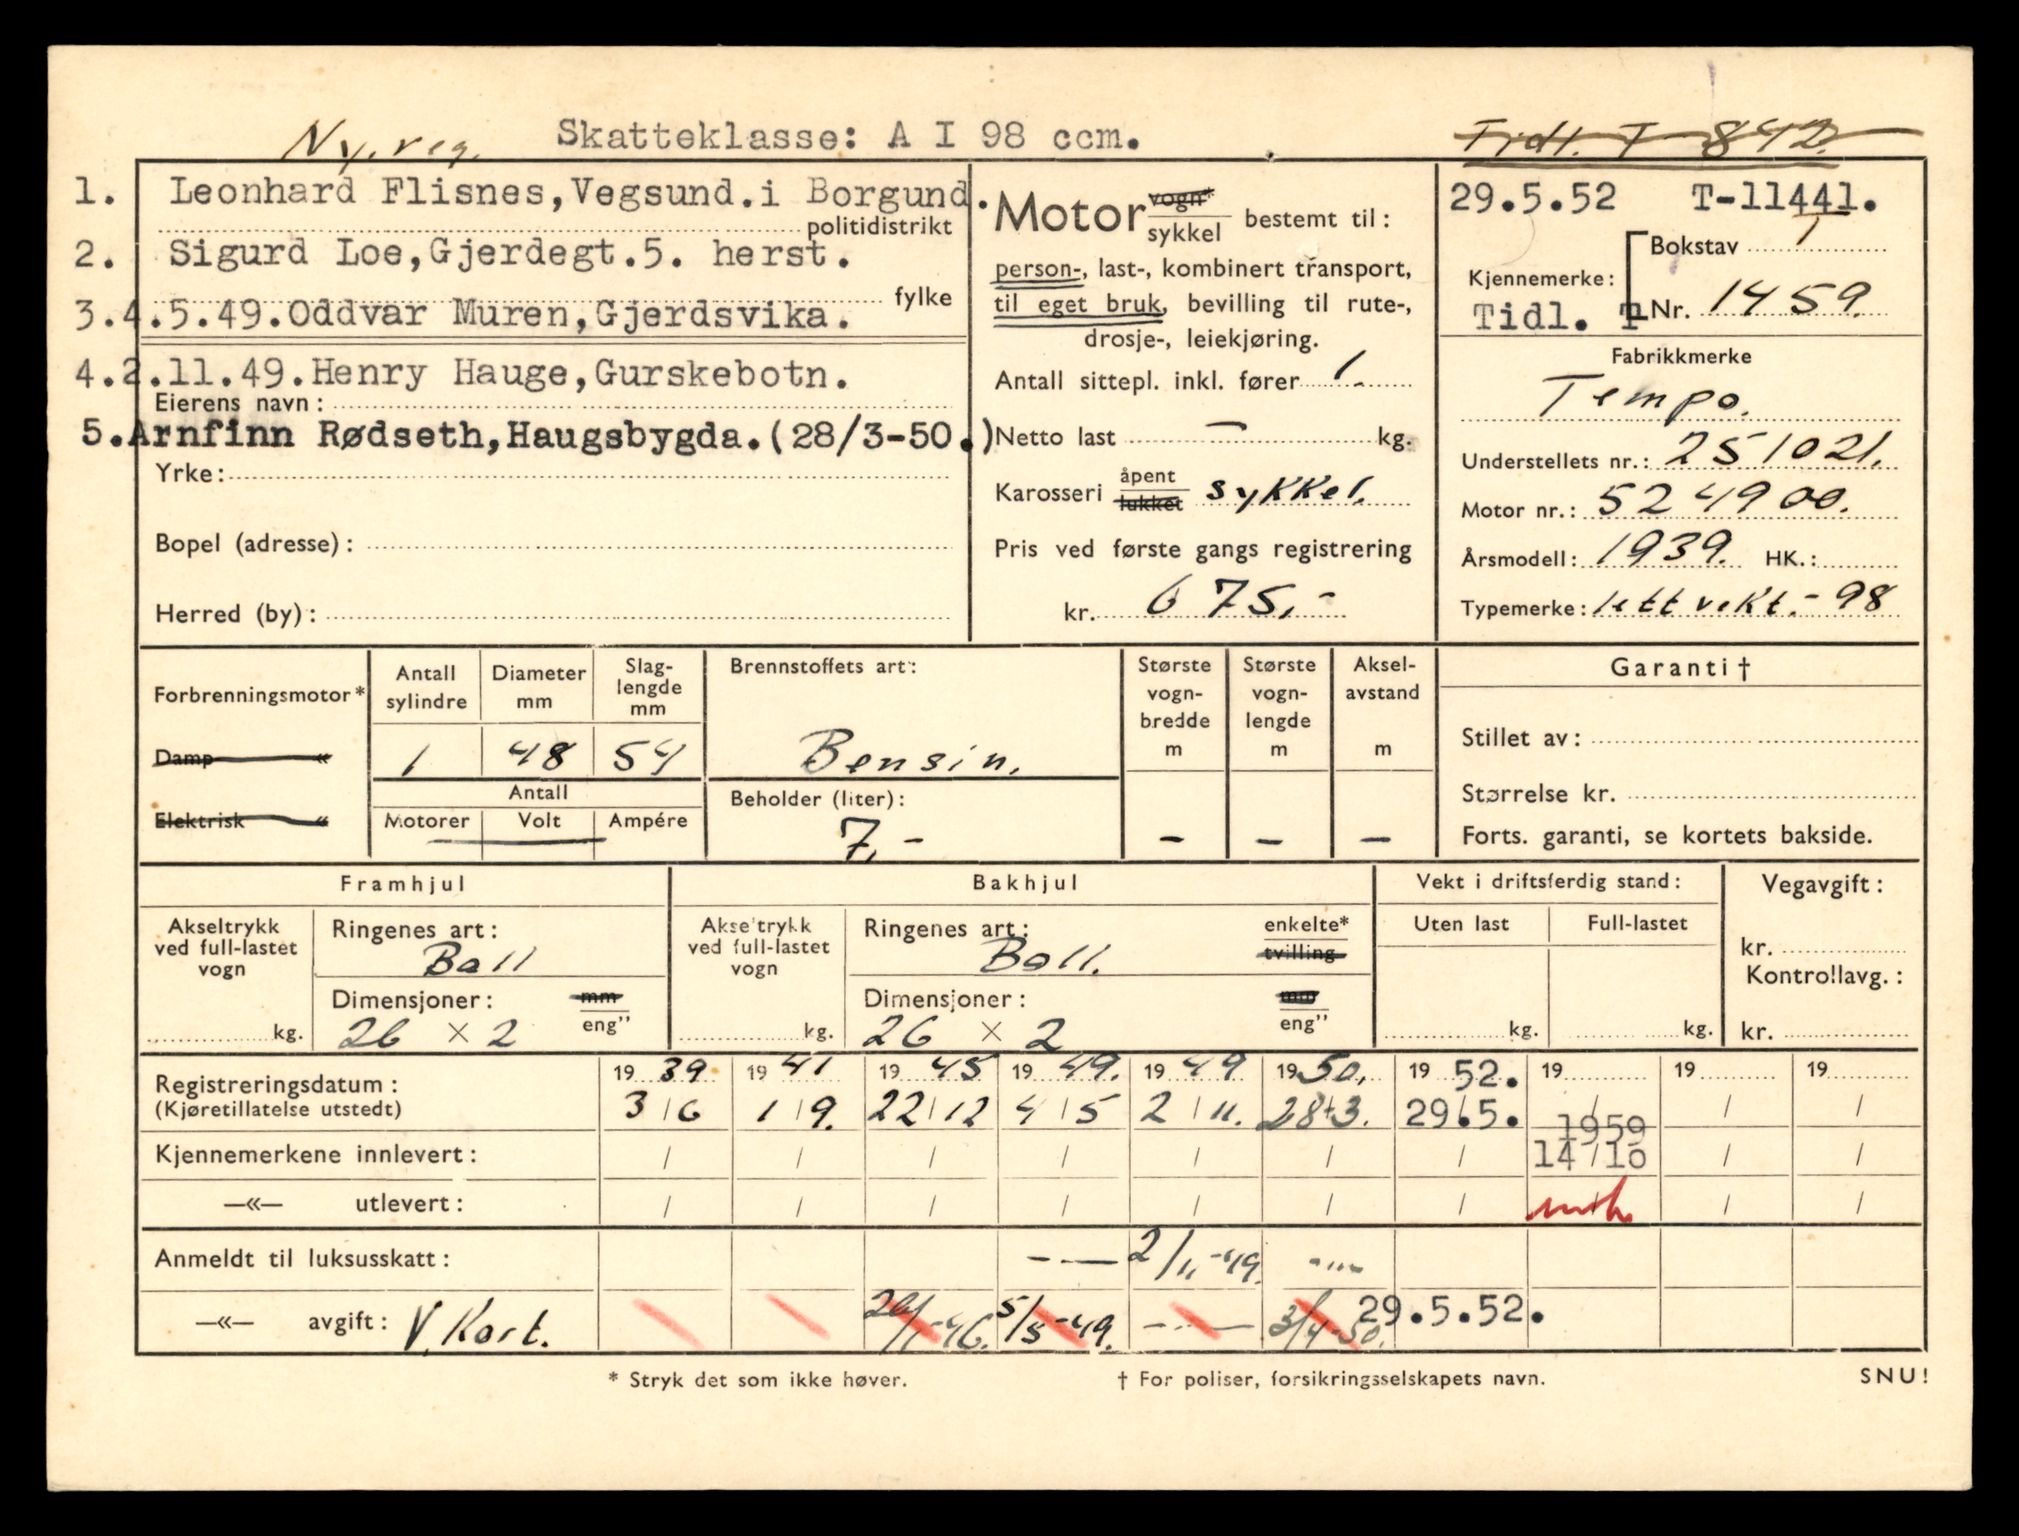 Ny.reg. Skatteklasse: A I 98 ccm. Tidl. T 842.
1. Leonhard Flisnes, Vegsund. i Borgund.
politidistrikt
2. Sigurd Loe, Gjerdegt.5. herst.
fylke
3.4.5.49. Oddvar Muren, Gjerdsvika.
4.2.11.49. Henry Hauge, Gurskebotn.
Eierens navn:
5. Arnfinn Rødseth, Haugsbygda. (28/3-50.)
Yrke:
Bopel (adresse):
Herred (by):
Motor vogn* sykkel bestemt til:
person-, last-, kombinert transport,
til eget bruk, bevilling til rute-,
drosje-, leiekjøring.
Antall sittepl. inkl. fører 1.
Netto last — kg.
Karosseri åpent lukket sykkel.
Pris ved første gangs registrering
kr. 675,-
29.5.52 T-11441.
Bokstav T
Kjennemerke:
Tidl. T Nr. 1459.
Fabrikkmerke
Tempo.
Understellets nr.: 251021.
Motor nr.: 524900.
Årsmodell: 1939. HK.:
Typemerke: lettvekt.- 98
Forbrenningsmotor*
Damp «
Elektrisk «
Antall sylindre Diameter mm Slag-lengde mm
1 48 54
Antall
Motorer Volt Ampére
Brennstoffets art:
Bensin.
Beholder (liter):
7,-
Største vogn-bredde m Største vogn-lengde m Aksel-avstand m
— — —
Garanti †
Stillet av:
Størrelse kr.
Forts. garanti, se kortets bakside.
Framhjul
Akseltrykk ved full-lastet vogn
kg.
Ringenes art:
Ball
Dimensjoner: mm eng”
26 × 2
Bakhjul
Akseltrykk ved full-lastet vogn
kg.
Ringenes art: enkelte* tvilling
Ball.
Dimensjoner: mm eng”
26 × 2
Vekt i driftsferdig stand:
Uten last Full-lastet
kg. kg.
Vegavgift:
kr.
Kontrollavg.:
kr.
Registreringsdatum: 19 39 19 41 19 45 19 49. 19 49 19 50. 19 52. 19 19 19
(Kjøretillatelse utstedt) 3/6 1/9. 22/12 4/5 2/11. 28/3. 29.5. / / /
1959
Kjennemerkene innlevert: / / / / / / / 14/10 / /
—«— utlevert: / / / / / / / / /
Anmeldt til luksusskatt: -— 2/11-49. -"-
—«— avgift: V. Kort. 5/5-49. -— 3/4-50. 29.5.52.
* Stryk det som ikke høver. † For poliser, forsikringsselskapets navn. SNU!